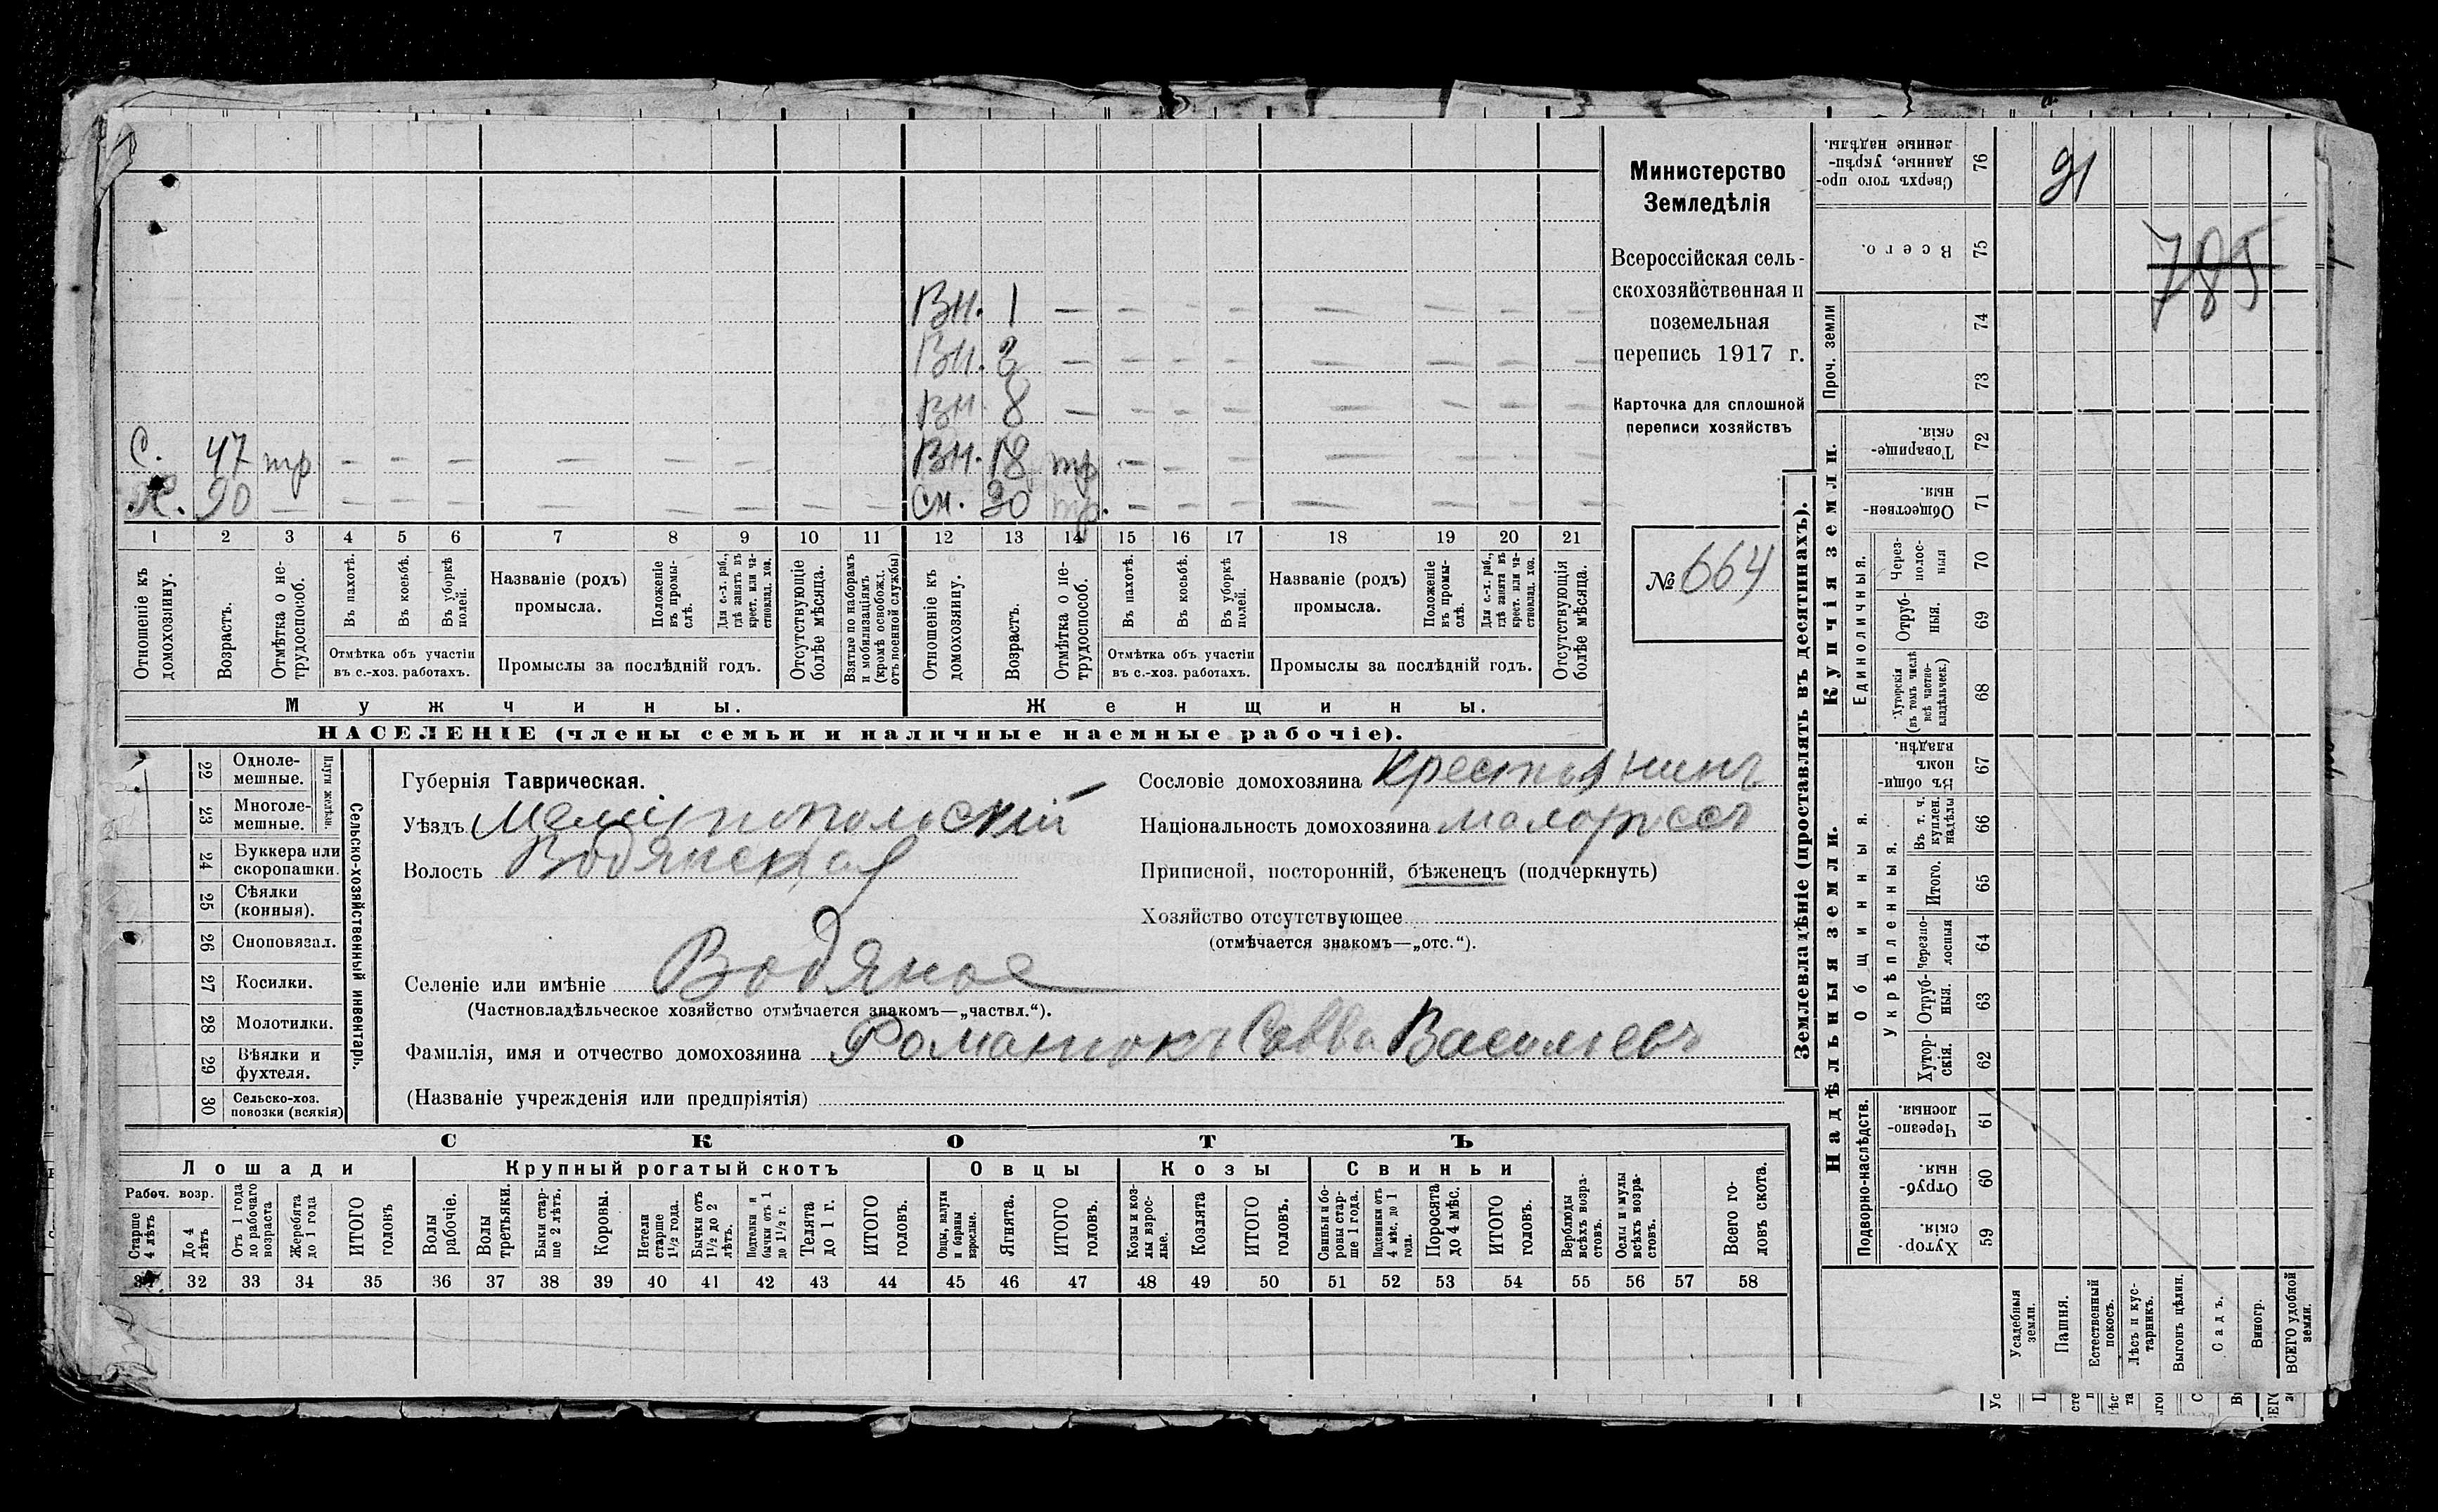 Министерство
Земледѣлія
Всероссійская сель-
скохозяйственная и
поземельная
перепись 1917 г.
Карточка для сплошной
переписи хозяйствъ
№ 664
Вн. 1 — — — — — — — —
Вн. 3 — — — — — — — —
Вн. 8 — — — — — — — —
С. 47 тр — — — — — — — —
Вн. 18 тр — — — — — — —
Х. 90 — — — — — — — — —
Сн. 30 тр. — — — — — — —
1 2 3 4 5 6 7 8 9 10 11 12 13 14 15 16 17 18 19 20 21
Отношеніе къ домохозяину.
Возрастъ.
Отмѣтка о не-трудоспособ.
Въ пахотѣ.
Въ косьбѣ.
Въ уборкѣ полей.
Отмѣтка объ участіи
въ с.-хоз. работахъ.
Названіе (родъ)
промысла.
Положеніе въ промы-слѣ.
Для с.-х. раб., гдѣ занятъ въ крест. или ча-стновлад. хоз.
Промыслы за послѣдній годъ.
Отсутствующіе болѣе мѣсяца.
Взятые по наборамъ и мобилизаціямъ (кромѣ освобожд. отъ военной службы)
Отношеніе къ домохозяину.
Возрастъ.
Отмѣтка о не-трудоспособ.
Въ пахотѣ.
Въ косьбѣ.
Въ уборкѣ полей.
Отмѣтка объ участіи
въ с.-хоз. работахъ.
Названіе (родъ)
промысла.
Положеніе въ промы-слѣ.
Для с.-х. раб., гдѣ занята въ крест. или ча-стновлад. хоз.
Промыслы за послѣдній годъ.
Отсутствующія болѣе мѣсяца.
Мужчины.
Женщины.
НАСЕЛЕНІЕ (члены семьи и наличные наемные рабочіе).
22 Одноле-мешные.
23 Многоле-мешные.
Плуги желѣзн.
24 Буккера или скоропашки.
25 Сѣялки (конныя).
26 Сноповязал.
27 Косилки.
28 Молотилки.
29 Вѣялки и фухтеля.
30 Сельско-хоз. повозки (всякія)
Сельско-хозяйственный инвентарь.
Губернія Таврическая.
Уѣздъ Мелитопольскій
Волость Водянская
Сословіе домохозяина Крестьянинъ
Національность домохозяина малороссъ
Приписной, посторонній, бѣженецъ (подчеркнуть)
Хозяйство отсутствующее
(отмѣчается знакомъ—„отс.“).
Селеніе или имѣніе Водяное
(Частновладѣльческое хозяйство отмѣчается знакомъ—„частвл.“).
Фамилія, имя и отчество домохозяина Романюкъ Савва Васильевъ
(Названіе учрежденія или предпріятія)
СКОТЪ
Лошади
Крупный рогатый скотъ
Овцы
Козы
Свиньи
Рабоч. возр.
Старше 4 лѣтъ
До 4 лѣтъ
Отъ 1 года до рабочаго возраста
Жеребята до 1 года
ИТОГО головъ
Волы рабочіе.
Волы третьяки.
Быки стар-ше 2 лѣтъ.
Коровы.
Нетели старше 1½ года.
Бычки отъ 1½ до 2 лѣтъ.
Подтелки и бычки отъ 1 до 1½ г.
Телята до 1 г.
ИТОГО головъ.
Овцы, валухи и бараны взрослые.
Ягнята.
ИТОГО головъ.
Козы и коз-лы взрос-лые.
Козлята
ИТОГО головъ.
Свиньи и бо-ровы стар-ше 1 года.
Подсвинки отъ 4 мѣс. до 1 года.
Поросята до 4 мѣс.
ИТОГО головъ.
Верблюды всѣхъ возра-стовъ.
Ослы и мулы всѣхъ возра-стовъ.
Всего го-ловъ скота.
31 32 33 34 35 36 37 38 39 40 41 42 43 44 45 46 47 48 49 50 51 52 53 54 55 56 57 58
Землевладѣніе (проставлять въ десятинахъ).
Сверхъ того про-данные, укрѣп-ленные надѣлы. 76
91
Всего. 75
785
Проч. земли
74
73
Купчія земли.
Товарище-скія. 72
Обществен-ныя. 71
Единоличныя.
Через-полос-ныя 70
Отруб-ныя. 69
Хуторскія (въ томъ числѣ всѣ частно-владѣльческ.) 68
Надѣльныя земли.
Общинныя.
Въ общи-номъ владѣн. 67
Укрѣпленныя.
Въ т. ч. куплен. надѣлы 66
Итого. 65
Черезпо-лосныя 64
Отруб-ныя. 63
Хутор-скія. 62
Подворно-наслѣдств.
Черезпо-лосныя. 61
Отруб-ныя. 60
Хутор-скія. 59
Усадебныя земли.
Пашня.
Естественный покосъ.
Лѣсъ и кус-тарникъ.
Выгонъ цѣлин.
Садъ.
Виногр.
ВСЕГО удобной земли.